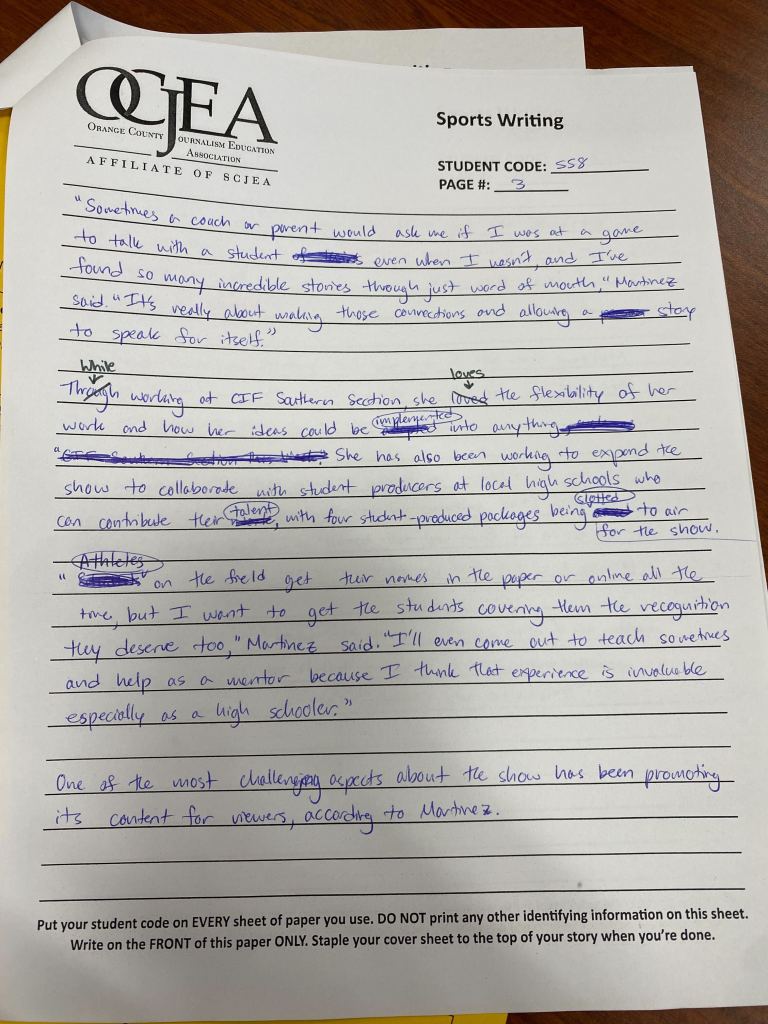 OCJEA
ORANGE COUNTY JOURNALISM EDUCATION
ASSOCIATION
AFFILIATE OF SCJEA
Sports Writing
STUDENT CODE: SS8
PAGE #: 3
"Sometimes a coach or parent would ask me if I was at a game
to talk with a student even when I wasn't, and I've
found so many incredible stories through just word of mouth," Martinez
said. "It's really about making those connections and allowing a story
to speak for itself."
While loves
Through working at CIF Southern Section, she loved the flexibility of her
work and how her ideas could be implemented into anything.
"CIF Southern Section This Week." She has also been working to expand the
show to collaborate with student producers at local high schools who
can contribute their talent, with four student-produced packages being slotted to air
for the show.
"Athletes on the field get their names in the paper or online all the
time, but I want to get the students covering them the recognition
they deserve too," Martinez said. "I'll even come out to teach sometimes
and help as a mentor because I think that experience is invaluable
especially as a high schooler."
One of the most challenging aspects about the show has been promoting
its content for viewers, according to Martinez.
Put your student code on EVERY sheet of paper you use. DO NOT print any other identifying information on this sheet.
Write on the FRONT of this paper ONLY. Staple your cover sheet to the top of your story when you're done.